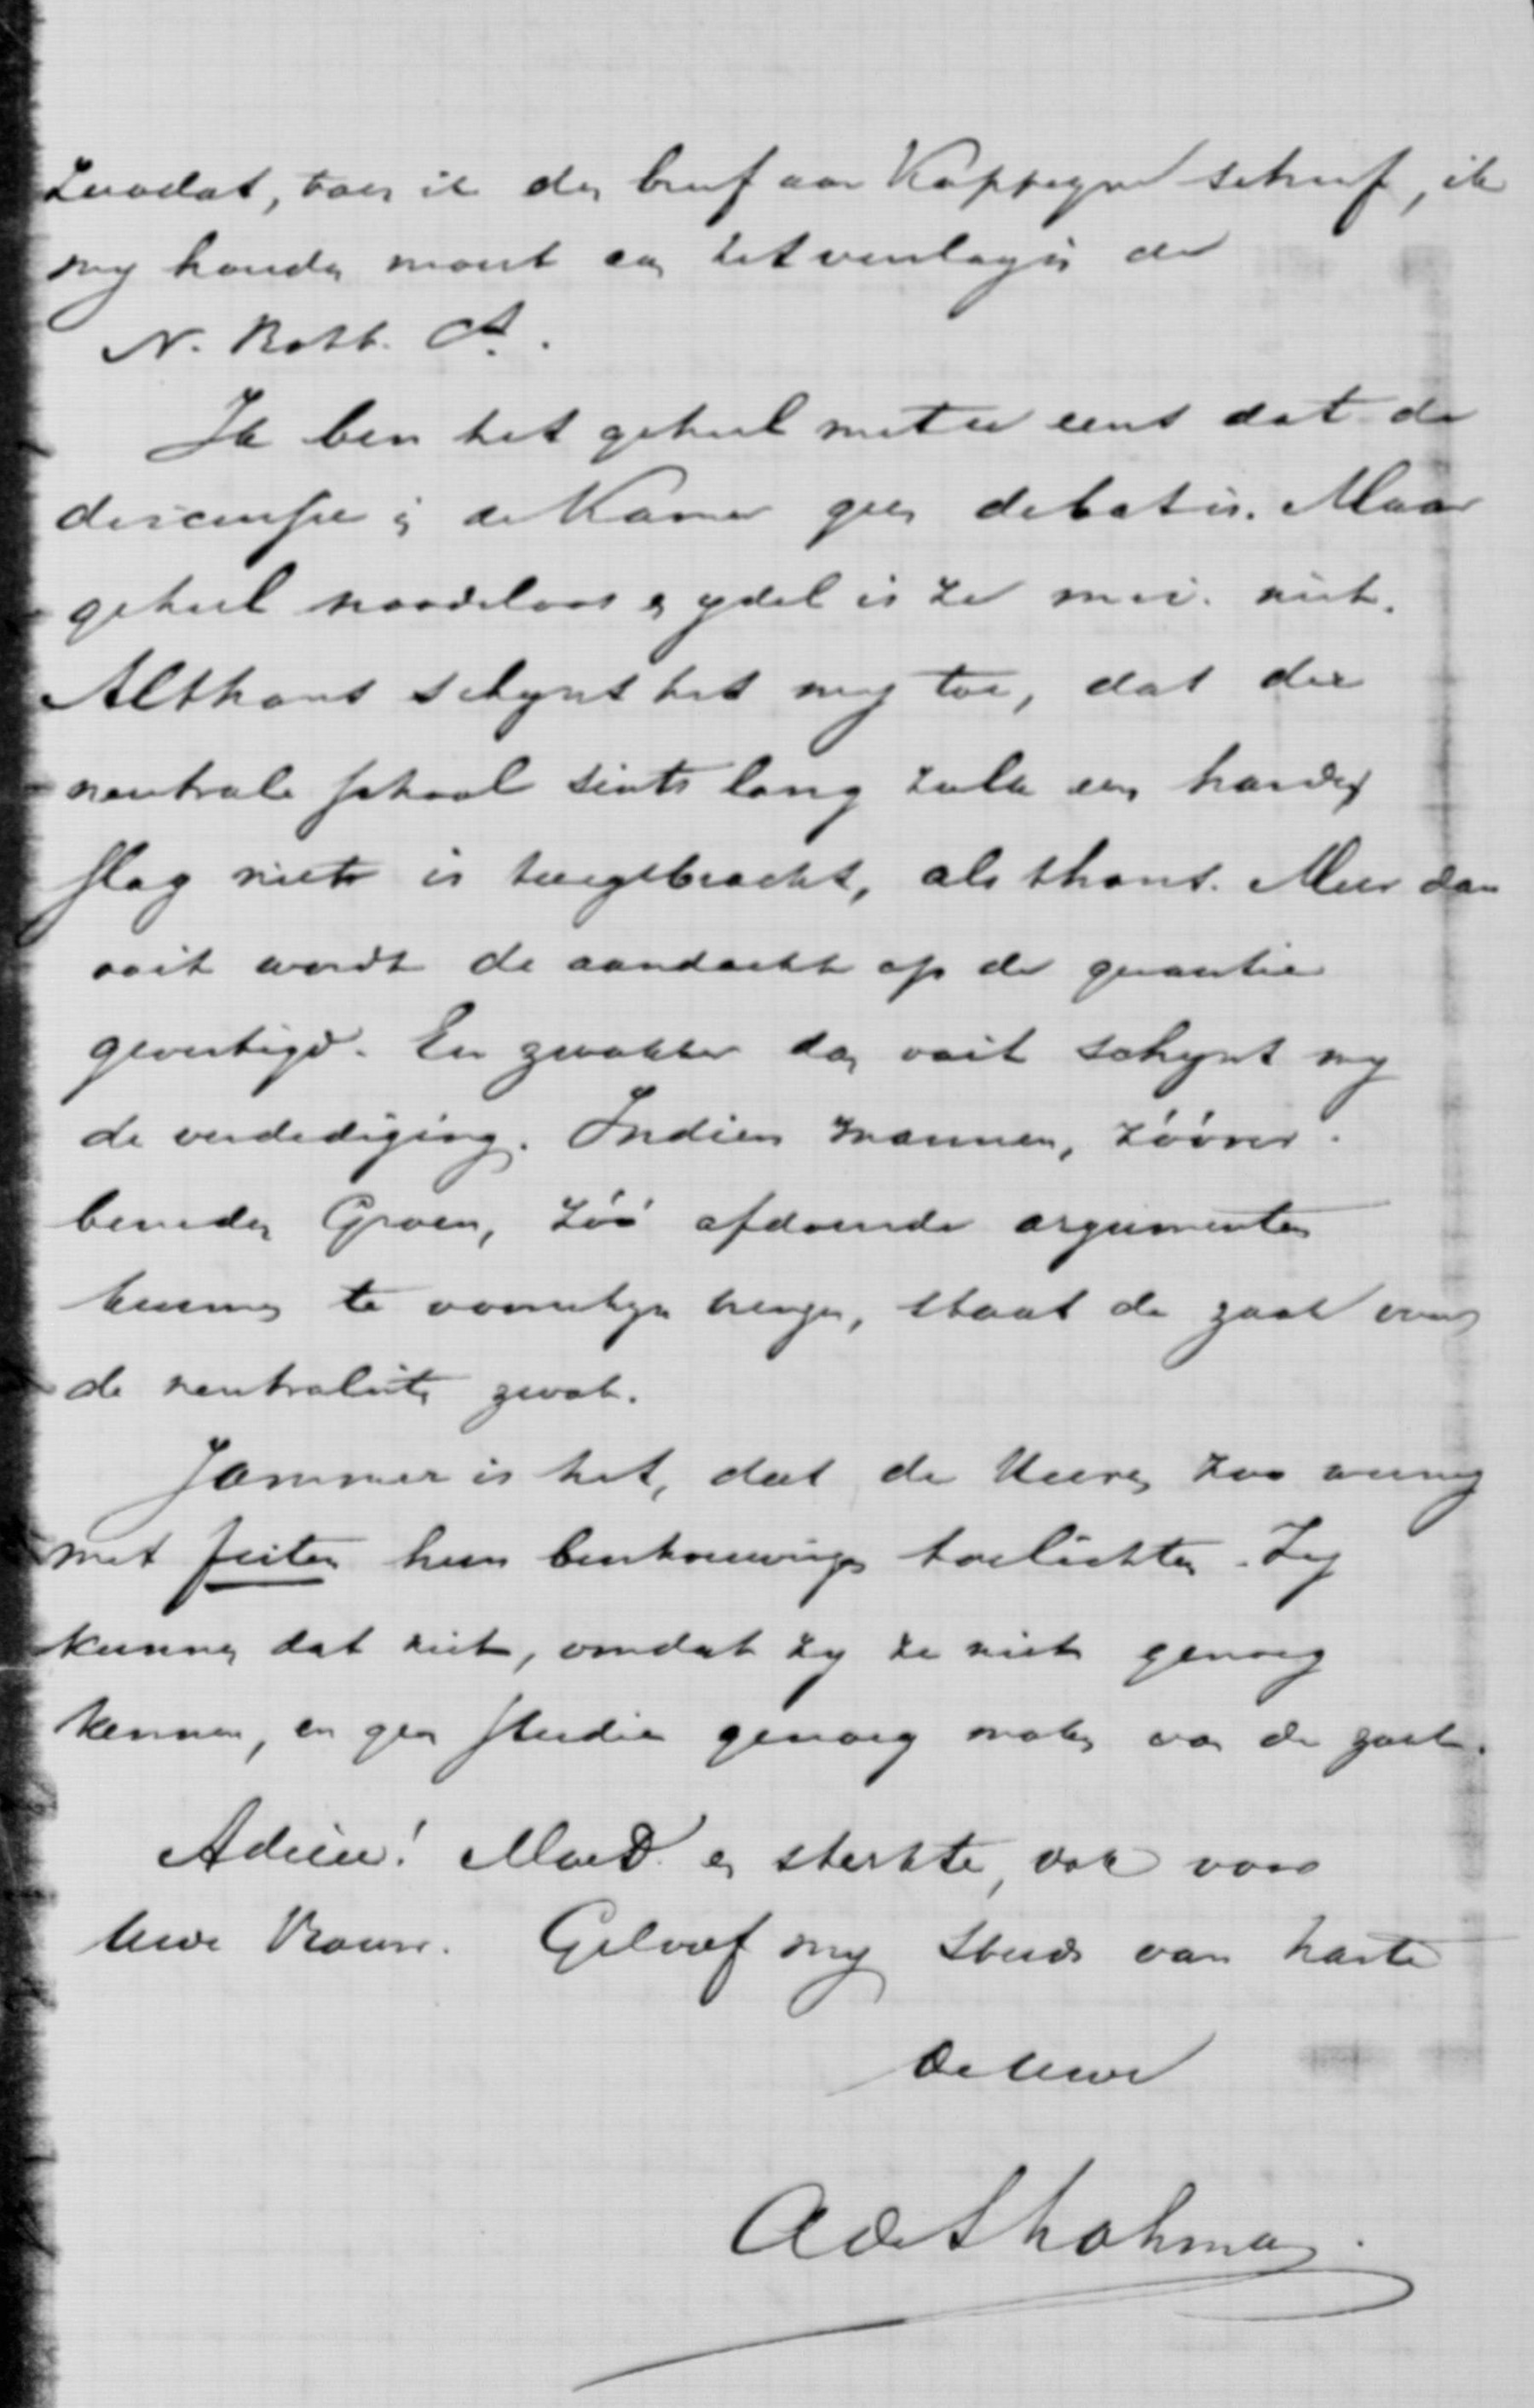 Zoodat, toen ik den brief aan Kappeyne schreef, ik
my houden moest aan het verslag in de
N. Rott. Ct.
Ik ben het geheel met u eens dat de
discussie in de Kamer geen debat is. Maar
geheel noodeloos en ydel is ze m.i. niet.
Althans schynt het my toe, dat die
neutrale school sints lang zulk een harden
slag niet is toegebracht, als thans. Meer dan
ooit wordt de aandacht op de quaestie
gevestigd. En zwakker dan ooit schynt my
de verdediging. Indien mannen, zóóver
beneden Groen, zóó afdoende argumenten
kunnen te voorschyn brengen, staat de zaak van
de neutraliteit zwak.
Jammer is het, dat de Heeren zoo weinig
met feiten hun beschouwingen toelichten. Zy
kunnen dat niet, omdat zy ze niet genoeg
kennen, en geen studie genoeg maken van de zaak.
Adieu! Moed en sterkte, ook voor
Uwe Vrouw. Geloof my steeds van harte
de Uwe
A d S Lohman.